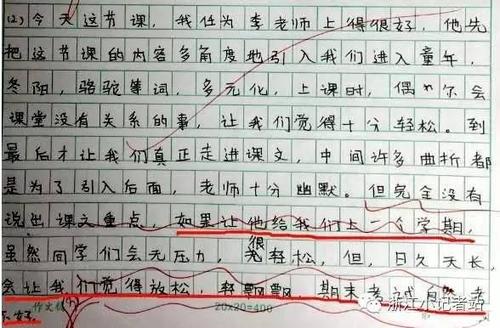 (2)今天这节课,我任为李老师上得很好,他先
把这节课的内容多角度地引入我们进入童年,
冬阳,骆驼等词,多元化,上课时,偶尔会
课堂没有关系的事,让我们觉得十分轻松。到
最后才让我们真正走进课文,中间许多曲折都
是为了引入后面,老师十分幽默。但完全没有
说出课文重点。如果让他给我们上一个学期,
虽然同学们会无压力,很轻松,但,日久天长,
会让我们觉得放松,轻飘飘,期末考试
不好。
作文
20×20=400
浙江小记者站